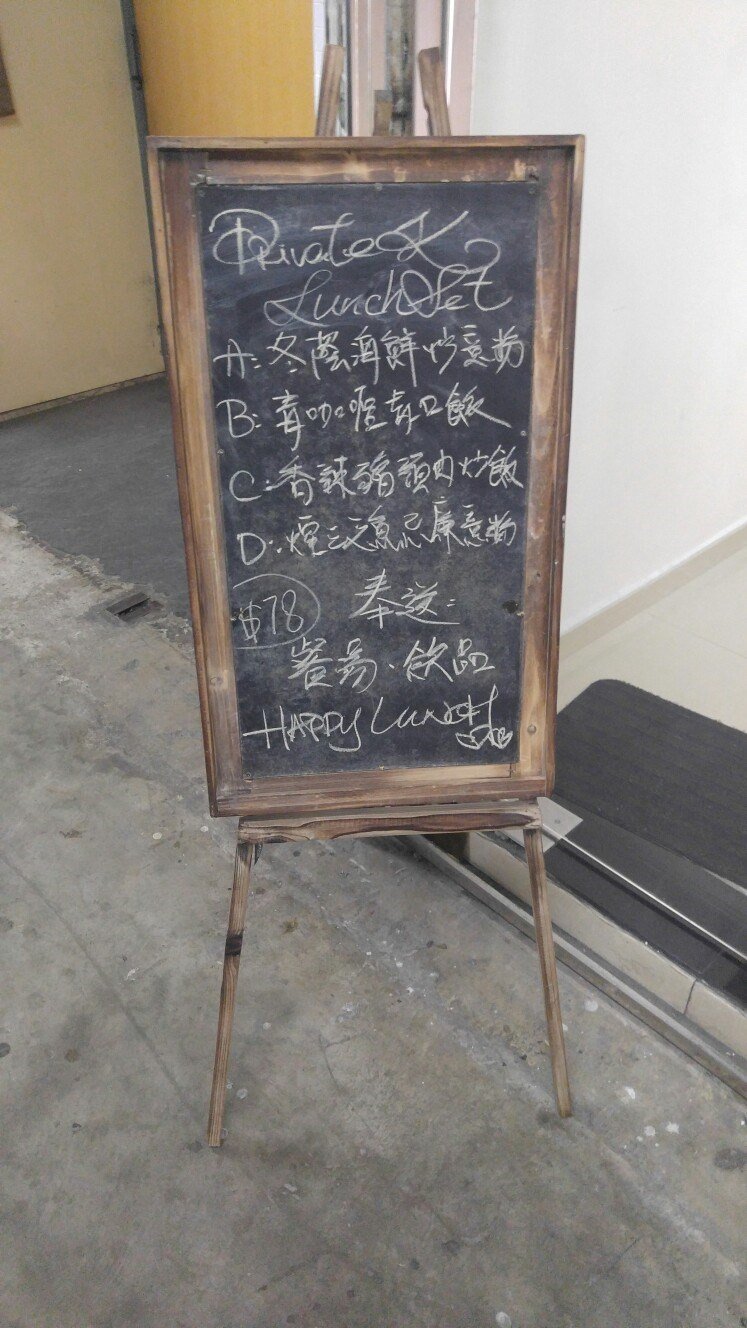 Private K
Lunch Set
A: 冬蔭海鮮炒意粉
B: 青咖喱青口飯
C: 香辣豬頸肉炒飯
D: 煙三文魚忌廉意粉
$78 奉送:
餐湯、飲品
HAPPY Lunch